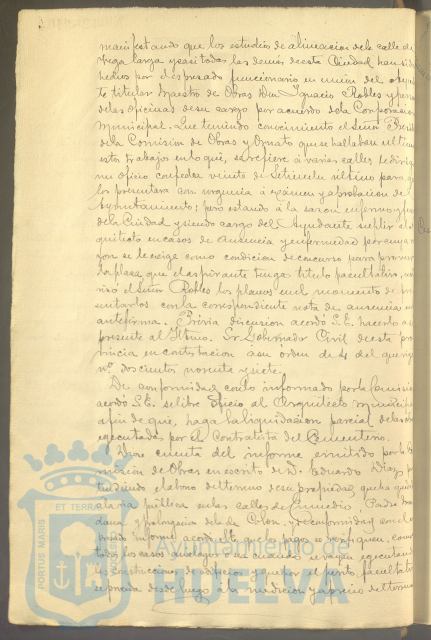 manifestando que los estudios de alineacion de la calle de
Vega larga y casi todas las demás de esta Ciudad han sido
hechos por el espresado funcionario en union del
te titular Maestro de Obras Don Ignacio Robles y
de las oficinas de su cargo por acuerdo de la Corporacion
Municipal. Que teniendo conocimiento el Señor
de la Comision de Obras y Ornato que se hallaban
estos trabajos en lo que se refiere á varias calles le dirigió
un oficio con fecha veinte de Setiembre último para q
los presentara con urgencia á exámen y aprobacion de
Ayuntamiento; pero estando á la sazon enfermo y
de la Ciudad y siendo cargo del Ayudante suplir el
quitecto en casos de Ausencia y enfermedad por cuya
zon se le exige como condicion de concurso para proveer
la plaza que el aspirante tenga titulo facultativo,
el Señor Robles los planos en el momento de
sentarlos con la correspondiente nota de ausencia
antefirma. Prévia discusion acordó S.E. hacerlo
presente al Iltmo. Sr. Gobernador Civil de esta pro
vincia en contestacion a su órden de 4 del que rige
nº. doscientos noventa y siete.
De conformidad con lo informado por la Comision
acordó S.E. se libre oficio al Arquitecto municipal
a fin de que, haga la liquidacion parcial de las obras
ejecutadas por el Contratista del Cementerio.
Dióse cuenta del informe emitido por la Co
mision de Obras en escrito de D. Eduardo Diaz
el abono del terreno de su propiedad que ha
á la via pública en las calles de
y prolongacion de la de Colon, y de conformidad con el
informe acordó S.E. que los pagos se verifiquen, como
todos los casos analogos, segun y cuando se vayan ejecutando
construcciones de edificios y que el perito facultativo
se proceda desde luego á la medicion y aprecio del terreno
PORTUS MARIS
ET TERRAE
Ayuntamiento de
HUELVA